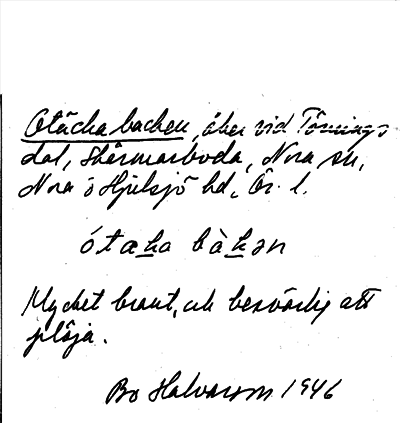 Otäcka backen, åker vid Tömings
dal, Skärmarboda, Nora sn,
Nora o Hjulsjö hd, Ör. l.
ótaka bàkən
Mycket brant, och besvärlig att
plöja.
Bo Halvarson 1946